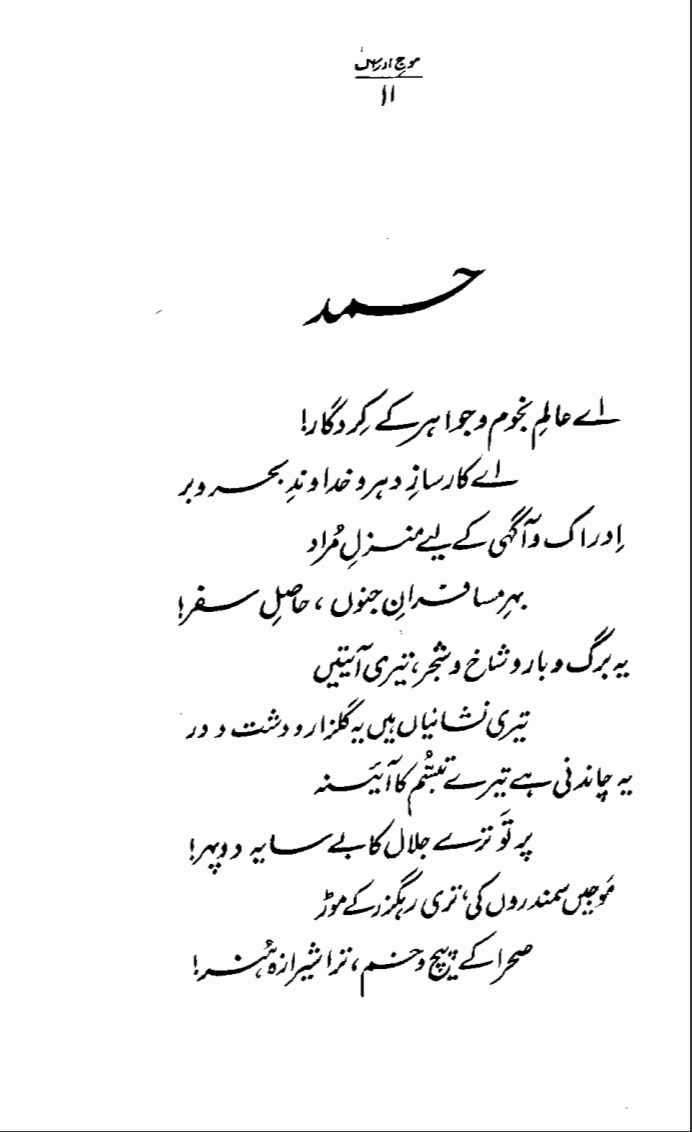 موجِ ادراک
۱۱
حمد
اے عالمِ نجوم و جواہر کے کِردگار!
اے کارسازِ دہر و خداوندِ بحر و بر
اِدراک و آگہی کے لیے منزلِ مُراد
بہرِ مسافرانِ جنوں ، حاصلِ سفر!
یہ برگ و بار و شاخ و شجر، تیری آیتیں
تیری نشانیاں ہیں یہ گلزار و دشت و در
یہ چاندنی ہے تیرے تبسُّم کا آئینہ
پرتَو ترے جلال کا بے سایہ دوپہر!
مَوجیں سمندروں کی، تری رہگزر کے موڑ
صحرا کے پیچ و خم، ترا شیرازۂ ہُنر!